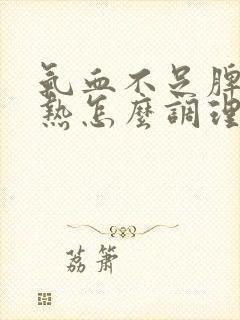 氣血不足脾
熱怎麼調理
荔簫